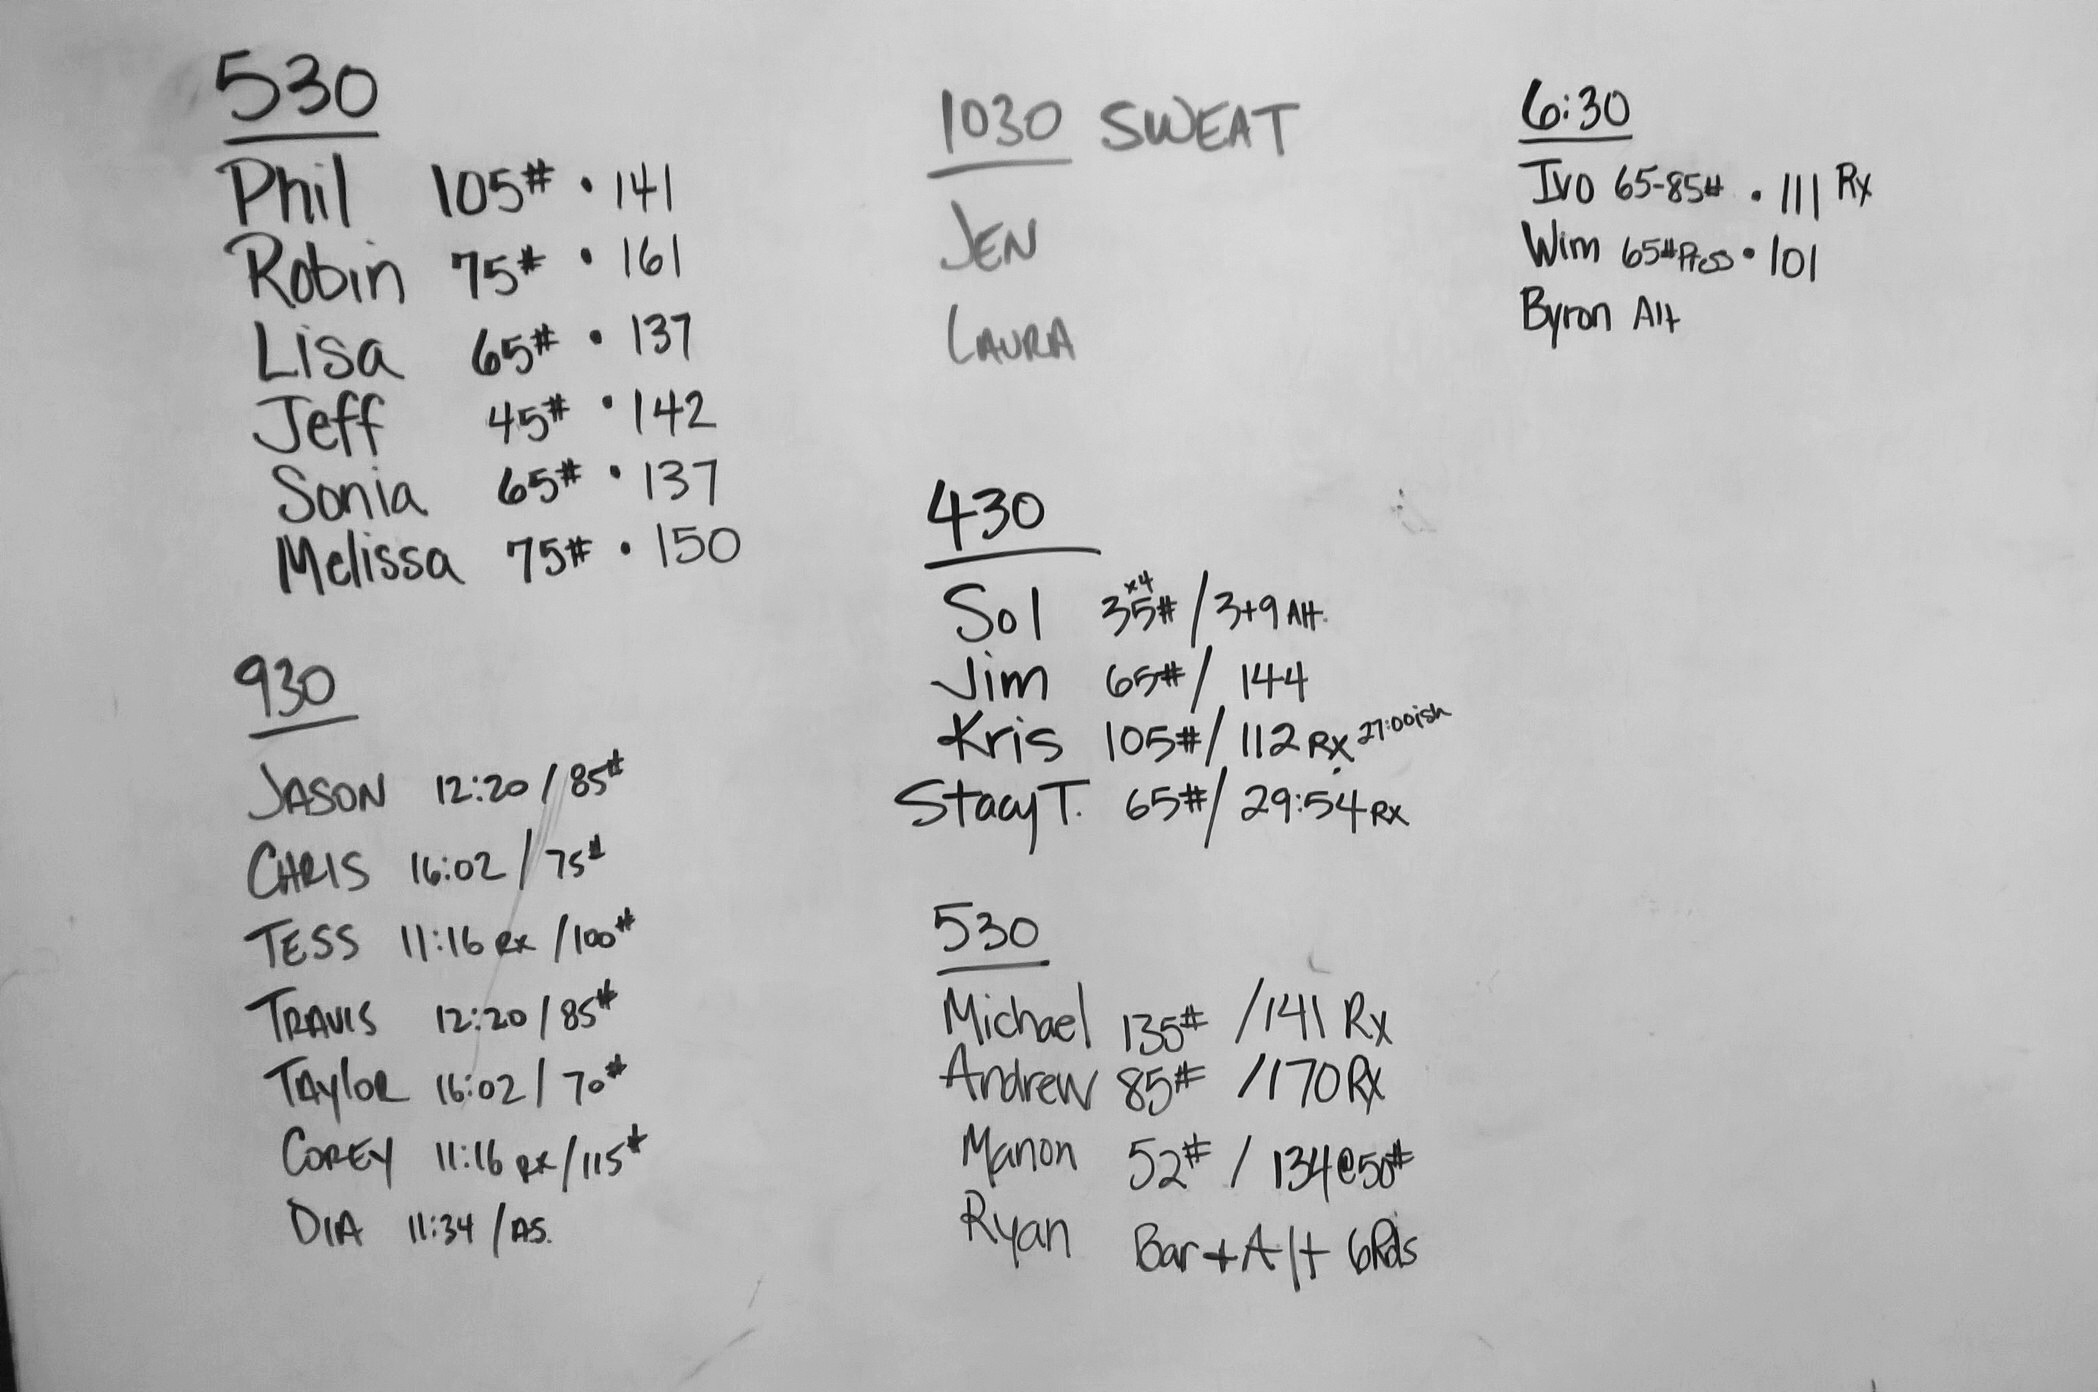 530
Phil 105# • 141
Robin 75# • 161
Lisa 65# • 137
Jeff 45# • 142
Sonia 65# • 137
Melissa 75# • 150
930
JASON 12:20 / 85#
CHRIS 16:02 / 75#
TESS 11:16 RX / 100#
TRAVIS 12:20 / 85#
TAYlOR 16:02 / 70#
COREY 11:16 RX / 115#
DIA 11:34 / AS.
1030 SWEAT
JEN
LAURA
430
Sol 35# x4 / 3+9 Alt.
Jim 65# / 144
Kris 105# / 112 RX 27:00ish
Stacy T. 65# / 29:54 RX
530
Michael 135# / 141 Rx
Andrew 85# / 170 Rx
Manon 52# / 134@50#
Ryan Bar + Alt 6Rds
6:30
Ivo 65-85# • 111 Rx
Wim 65# Press • 101
Byron Alt